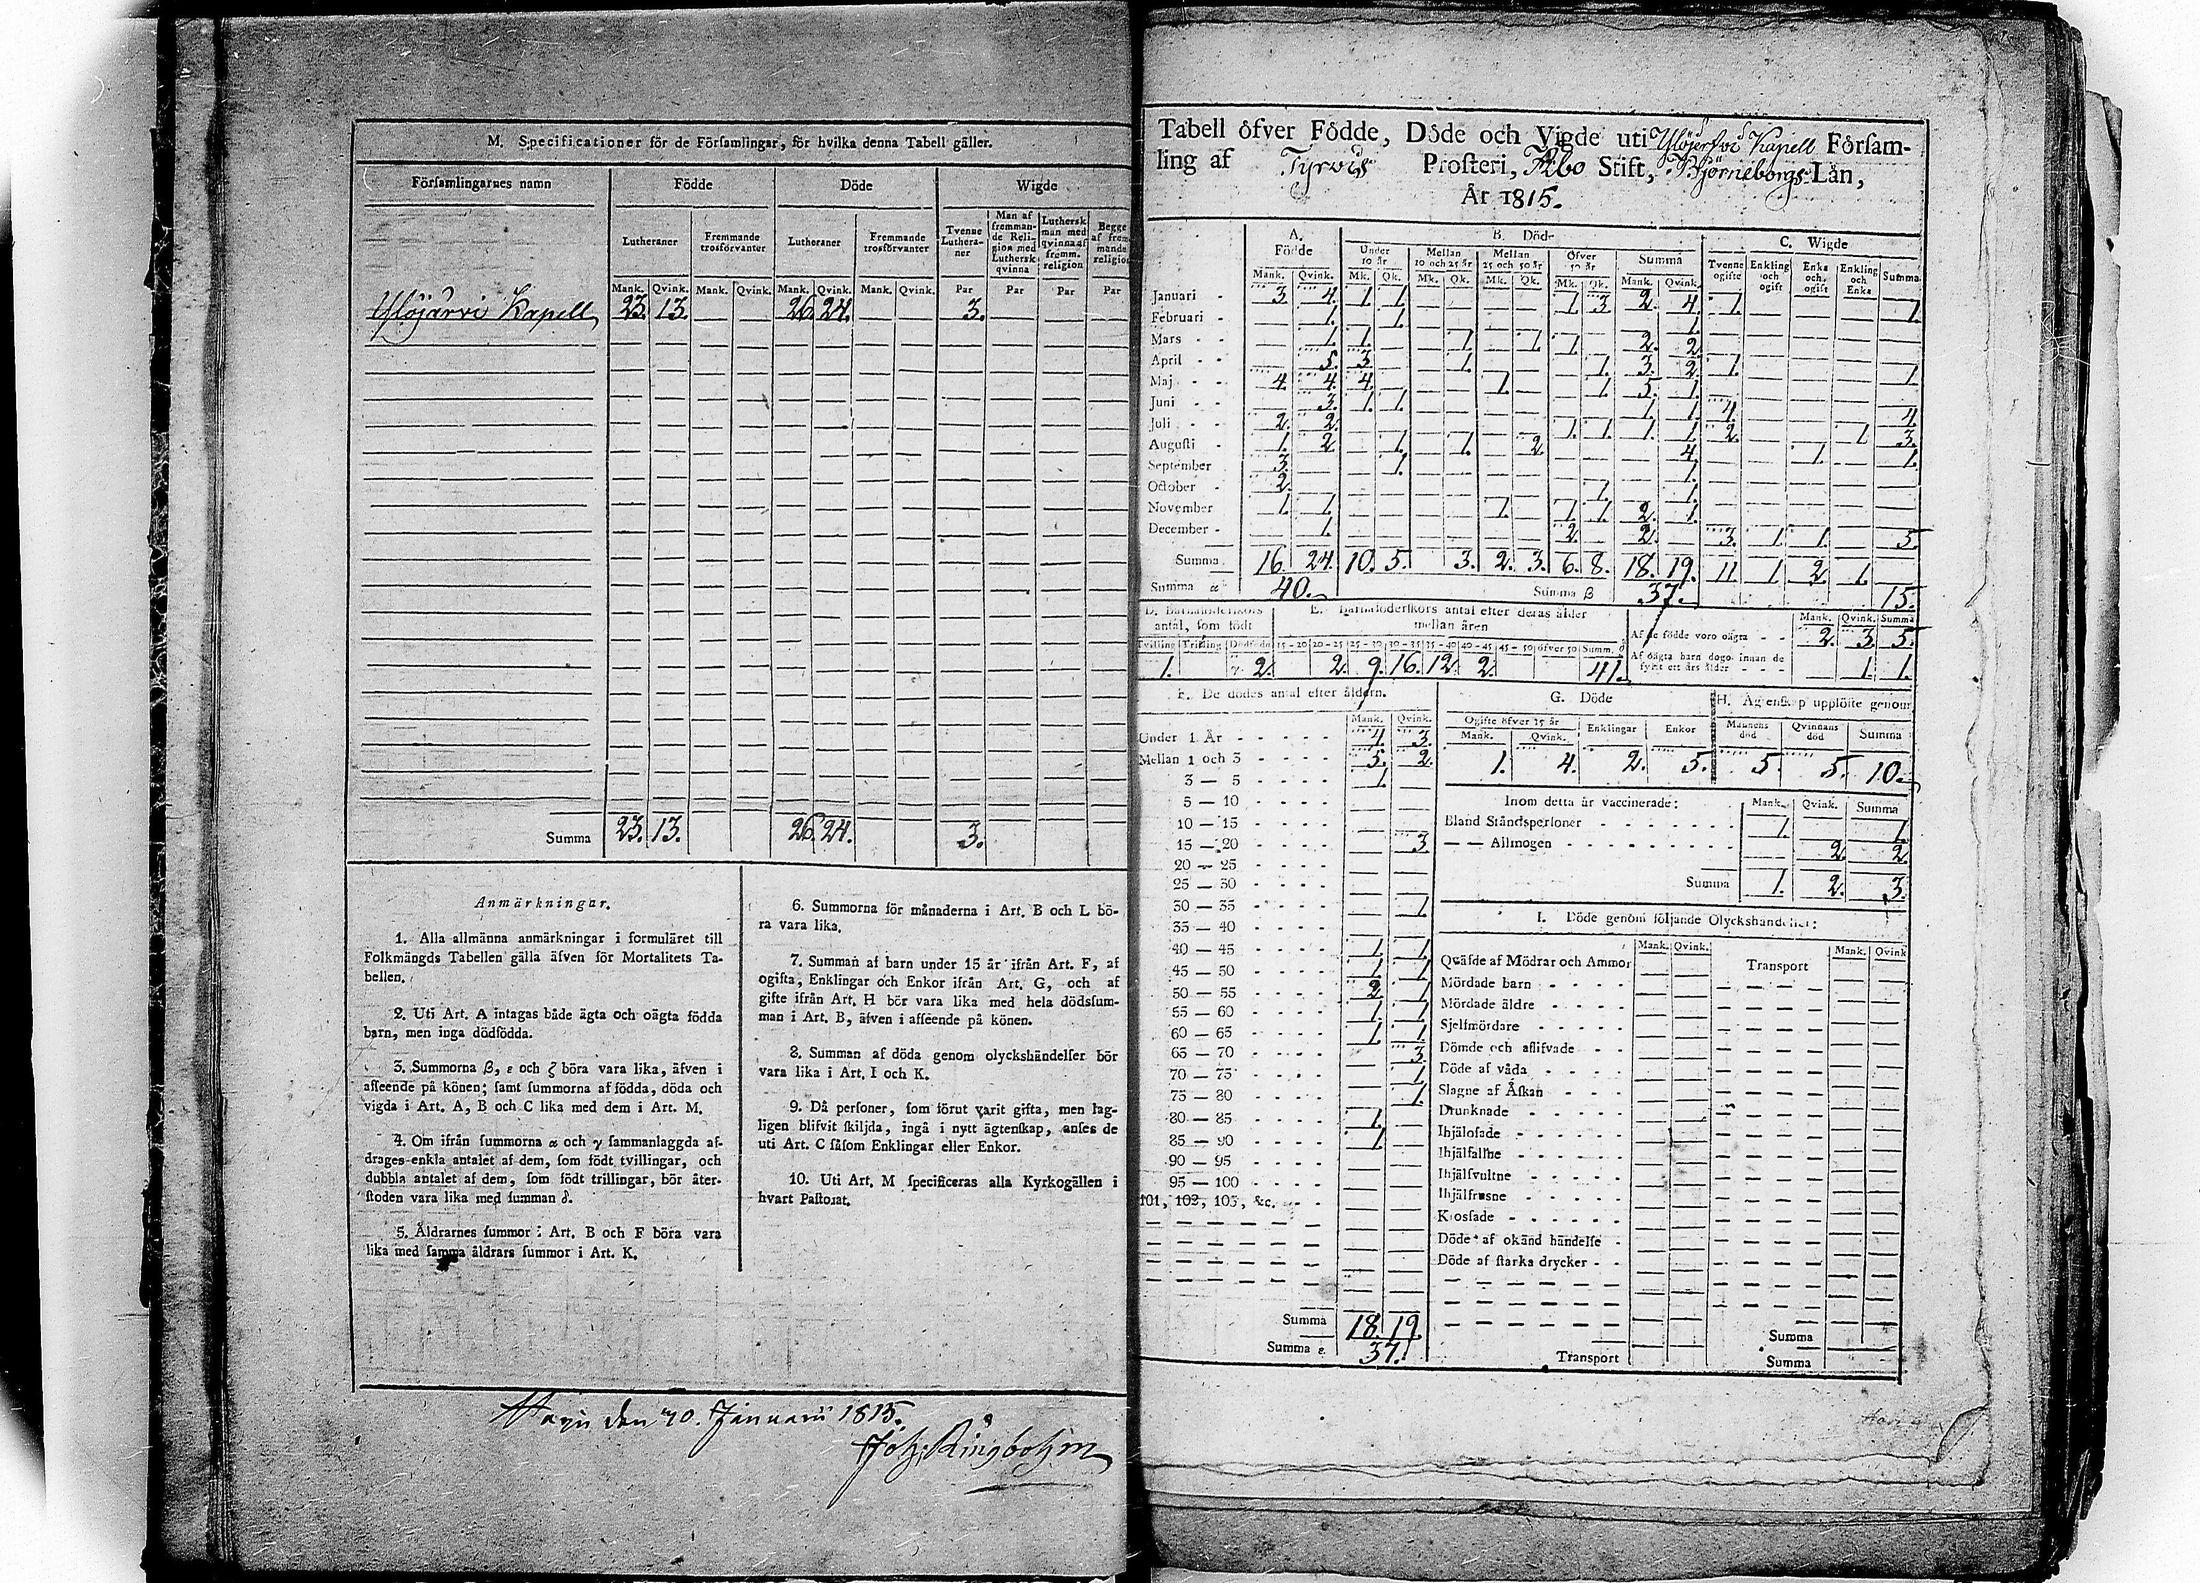 M. Specificationer för de Förſamlingar, för hvilka denna Tabell gäller.
Förſamlingarnes namn Födde Döde Wigde
Lutheraner Fremmande trosförvanter Lutheraner Fremmande trosförvanter Tvenne Lutheraner Man af fremmande Religion med Luthersk qvinna Luthersk man med qvinna af fremm. religion Begge af fremmande religion
Mank. Qvink. Mank. Qvink. Mank. Qvink. Mank. Qvink. Par Par Par Par
Ylöjärvi Kapell 23. 13. — — 26. 24. — — 3. — — —
Summa 23. 13. 26 24. 3.
Anmärkningar.
1. Alla allmänna anmärkningar i formuläret till
Folkmängds Tabellen gälla äfven för Mortalitets Ta-
bellen.
2. Uti Art. A intagas både ägta och oägta födda
barn, men inga dödfödda.
3. Summorna β, ε och ζ böra vara lika, äfven i
afſeende på könen; ſamt ſummorna af födda, döda och
vigda i Art. A, B och C lika med dem i Art. M.
4. Om ifrån ſummorna α och γ ſammanlaggda af-
drages enkla antalet af dem, ſom födt tvillingar, och
dubbla antalet af dem, ſom födt trillingar, bör åter-
ſtoden vara lika med ſumman δ.
5. Åldrarnes ſummor i Art. B och F böra vara
lika med ſamma åldrars ſummor i Art. K.
6. Summorna för månaderna i Art. B och L bö-
ra vara lika.
7. Summan af barn under 15 år ifrån Art. F, af
ogifta, Enklingar och Enkor ifrån Art. G, och af
gifte ifrån Art. H bör vara lika med hela dödsſum-
man i Art. B, äfven i afſeende på könen.
8. Summan af döda genom olyckshändelſer bör
vara lika i Art. I och K.
9. Då perſoner, ſom förut varit gifta, men lag-
ligen blifvit ſkiljda, ingå i nytt ägtenſkap, anſes de
uti Art. C ſåſom Enklingar eller Enkor.
10. Uti Art. M ſpecificeras alla Kyrkogällen i
hvart Paſtorat.
den 20. Januarii 1815.
Joh. Ringbohm
Tabell öfver Födde, Döde och Vigde uti Ylöjerfvi Kapell Förſam-
ling af Tyrvis Proſteri, Åbo Stift, Björneborgs Län,
År 1815.
A. Födde B. Döde C. Wigde
Under 10 år Mellan 10 och 25 år Mellan 25 och 50 år Öfver 50 år Summa Tvenne ogifte Enkling och ogift Enka och ogift Enkling och Enka Summa
Mank. Qvink. Mk. Qk. Mk. Qk. Mk. Qk. Mk. Qk. Mank. Qvink.
Januari 3. 4. 1. 1. 1. 3 2. 4. 1. 1.
Februari 1. 1. 1.
Mars 1. 1. 1. 1. 1. 2. 2.
April 5. 3. 1. 1. 3. 2. 1. 1.
Maj 4. 4. 4. 1. 1. 5. 1.
Juni 3. 1. 1. 1. 1. 4. 4.
Juli 2. 2. 1. 1. 1. 1. 2. 1. 3.
Auguſti 1. 2. 1. 1. 2. 4. 1. 1.
September 3. 1. 1.
October 2. 1. 1.
November 1. 1. 1. 1. 1. 2. 1.
December 1. 2. 2. 3. 1. 1. 5.
Summa 16. 24. 10. 5. 3. 2. 3. 6. 8. 18. 19. 11 1 2. 1.
Summa α 40. Summa β 37. 15.
D. Barnaföderſkors antal, ſom födt
E. Barnaföderſkors antal efter deras ålder mellan åren
Mank. Qvink. Summa
Af de födde voro oägta 2. 3. 5.
Af oägta barn dogo innan de fyllt ett års ålder 1. 1.
Tvilling Trilling Dödfödn. 15 - 20 20 - 25 25 - 30 30 - 35 35 - 40 40 - 45 45 - 50 öfver 50 Summ. δ
1. γ 2. 2. 9. 16. 12. 2. 41.
F. De dödes antal efter åldern.
Mank. Qvink.
Under 1 År 4. 3.
Mellan 1 och 3 5. 2.
3 — 5 1.
5 — 10
10 — 15
15 — 20 3.
20 — 25
25 — 30
30 — 35 1.
35 — 40
40 — 45 1. 1.
45 — 50 1. 1.
50 — 55 2. 1.
55 — 60 1. 1.
60 — 65 1. 1.
65 — 70 3.
70 — 75 1.
75 — 80 1.
80 — 85 1.
85 — 90 1.
90 — 95
95 — 100
101, 102, 103, &c.
Summa 18. 19.
Summa ε 37.
G. Döde
Ogifte öfver 15 år Enklingar Enkor
Mank. Qvink.
1. 4. 2. 5.
H. Ägtenſkap upplöſte genom
Mannens död Qvinnans död Summa
5. 5. 10.
Inom detta år vaccinerade: Mank. Qvink. Summa
Bland Ståndsperſoner 1. 1.
— — Allmogen 2. 2.
Summa 1. 2. 3.
I. Döde genom följande Olyckshändelſer:
Mank. Qvink. Mank. Qvink
Qväfde af Mödrar och Ammor Transport
Mördade barn
Mördade äldre
Sjelfmördare
Dömde och aflifvade
Döde af våda
Slagne af Åſkan
Drunknade
Ihjäloſade
Ihjälfallne
Ihjälſvultne
Ihjälfrusne
Kroſſade
Döde af okänd händelſe
Döde af ſtarka drycker
Summa
Transport Summa